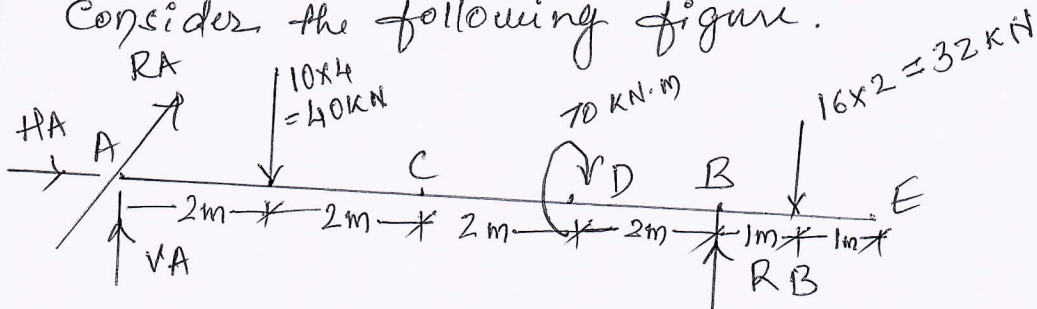 Consider the following figure.
RA
10x4
= 40KN
70 KN.m
16x2 = 32KN
HA
A
C
D
B
E
2m
2m
2m
2m
1m
1m
VA
RB